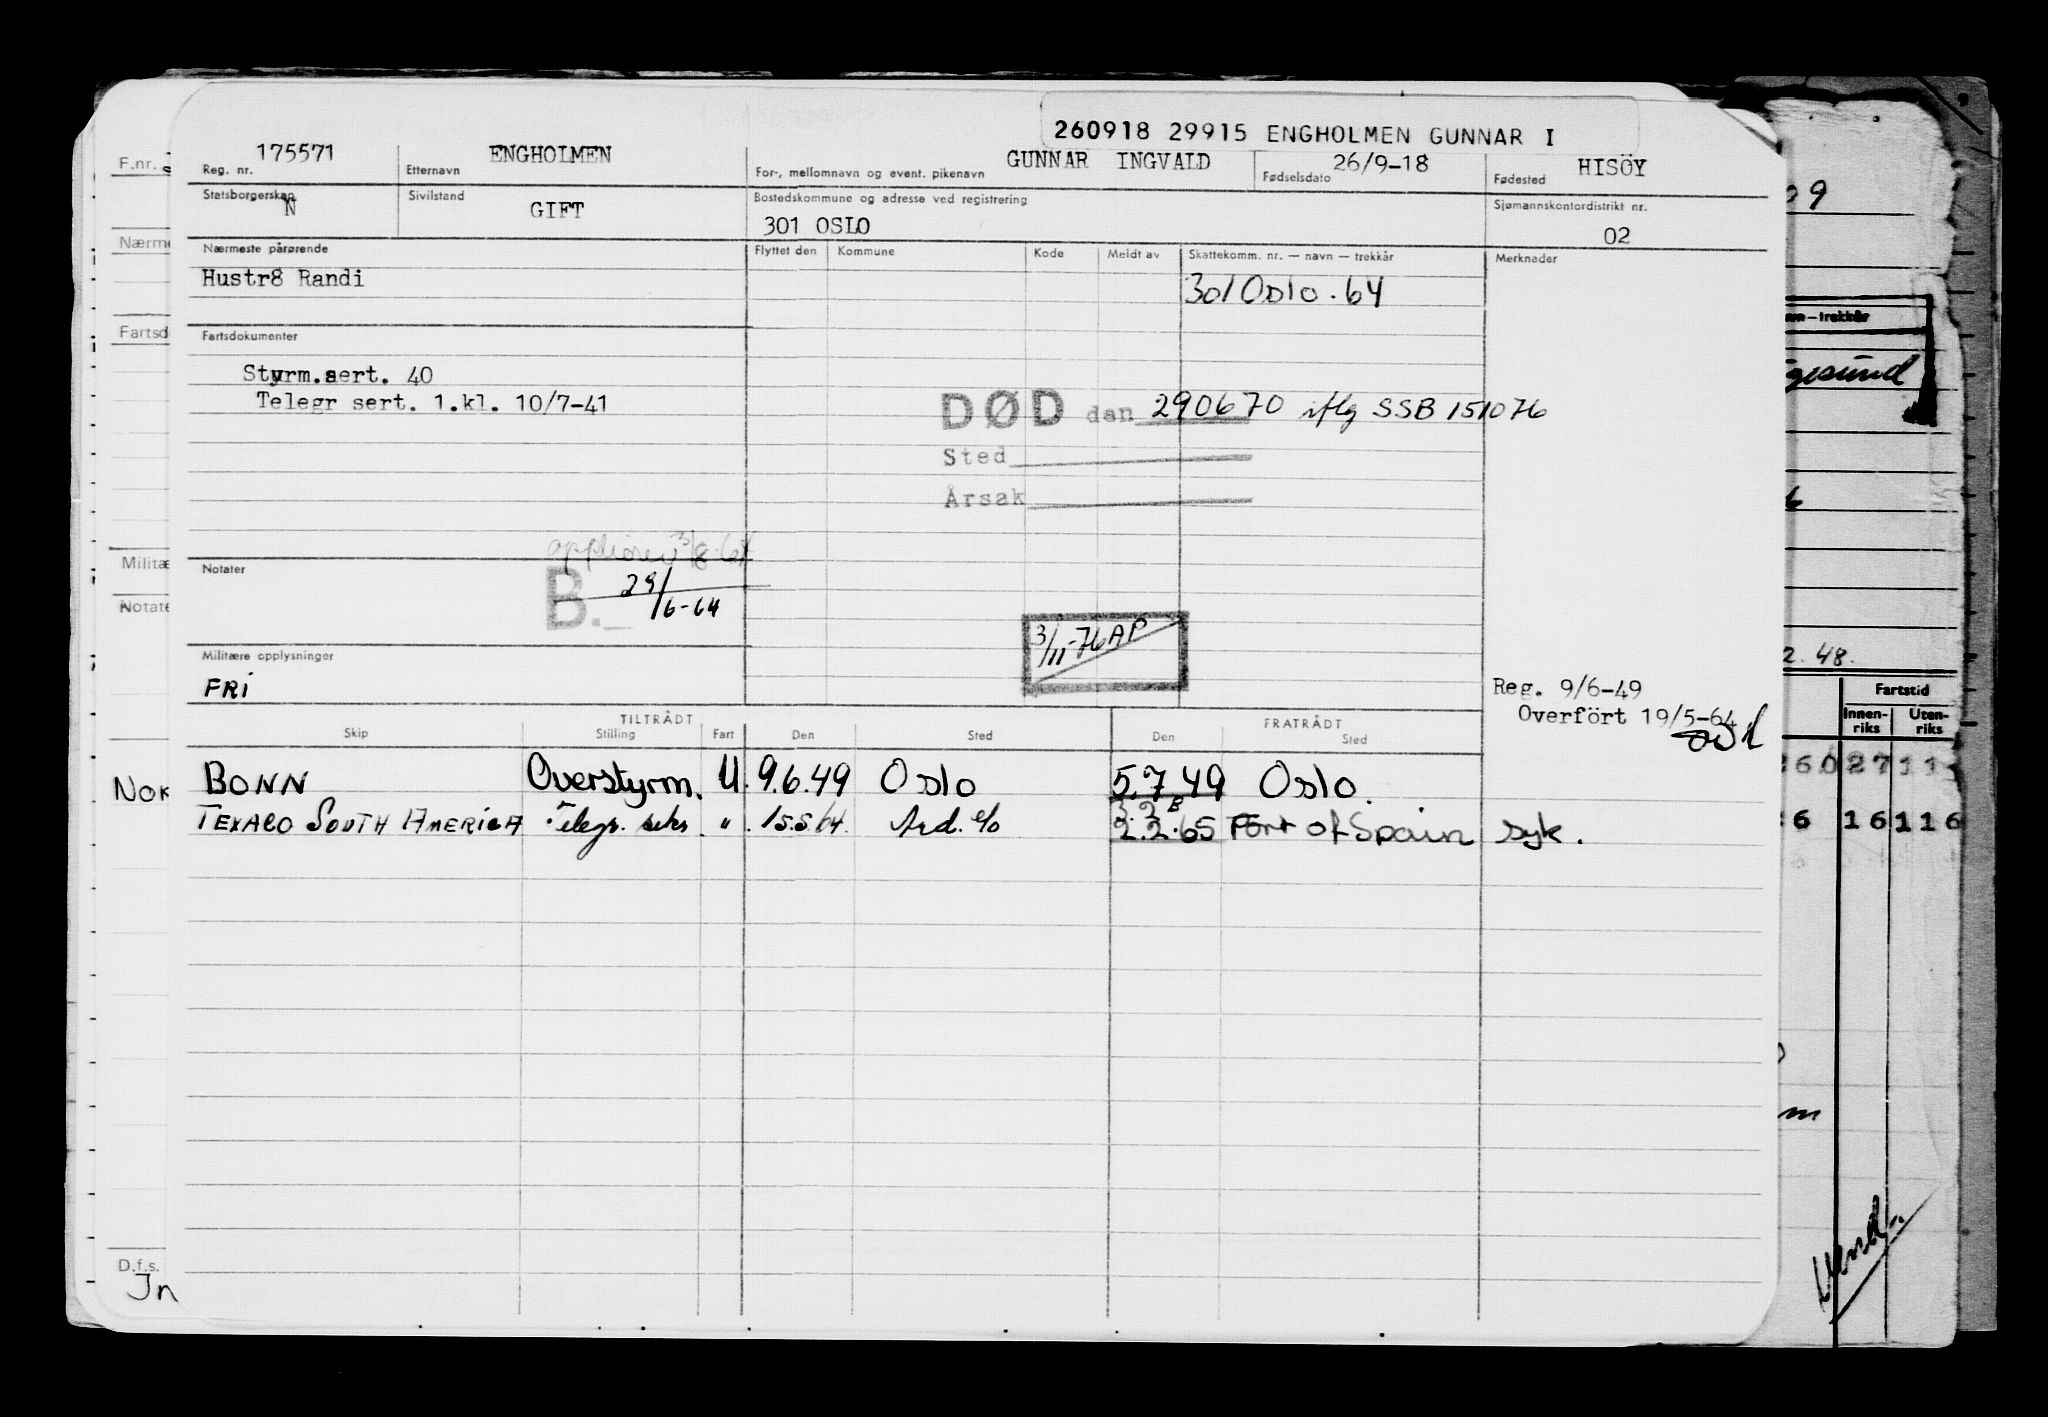 260918 29915 ENGHOLMEN GUNNAR I
Reg. nr. 175571 Etternavn ENGHOLMEN For-, mellomnavn og event. pikenavn GUNNAR INGVALD Fødselsdato 26/9-18 Fødested HISÖY
Statsborgerskap N Sivilstand GIFT Bostedskommune og adresse ved registrering 301 OSLO Sjømannskontordistrikt nr. 02
Nærmeste pårørende Flyttet den Kommune Kode Meldt av Skattekomm. nr. — navn — trekkår Merknader
Hustr8 Randi 301 Oslo . 64
Fartsdokumenter
Styrm.sert. 40
Telegr sert. 1.kl. 10/7-41
DØD den 290670 iflg SSB 151076
Sted
Årsak
3/8-64
Notater B. 29/6-64
3/11-76 AP
Militære opplysninger
FRI
Reg. 9/6-49
Overfört 19/5-64
TILTRÅDT FRATRÅDT
Skip Stilling Fart Den Sted Den Sted
BONN Overstyrm. U. 9.6.49 Oslo 5.7.49 Oslo.
TEXACO SOUTH AMERICA Telegr. " 15.5.64. 2.2.65 Port of Spain syk.
F.nr.
Nærme
Fartsd
Militæ
Notate
NOR
D.f.s.
In
09
trekkår
gesund
2. 48.
Fartstid
Innen-riks Uten-riks
26 16 116
Vend.